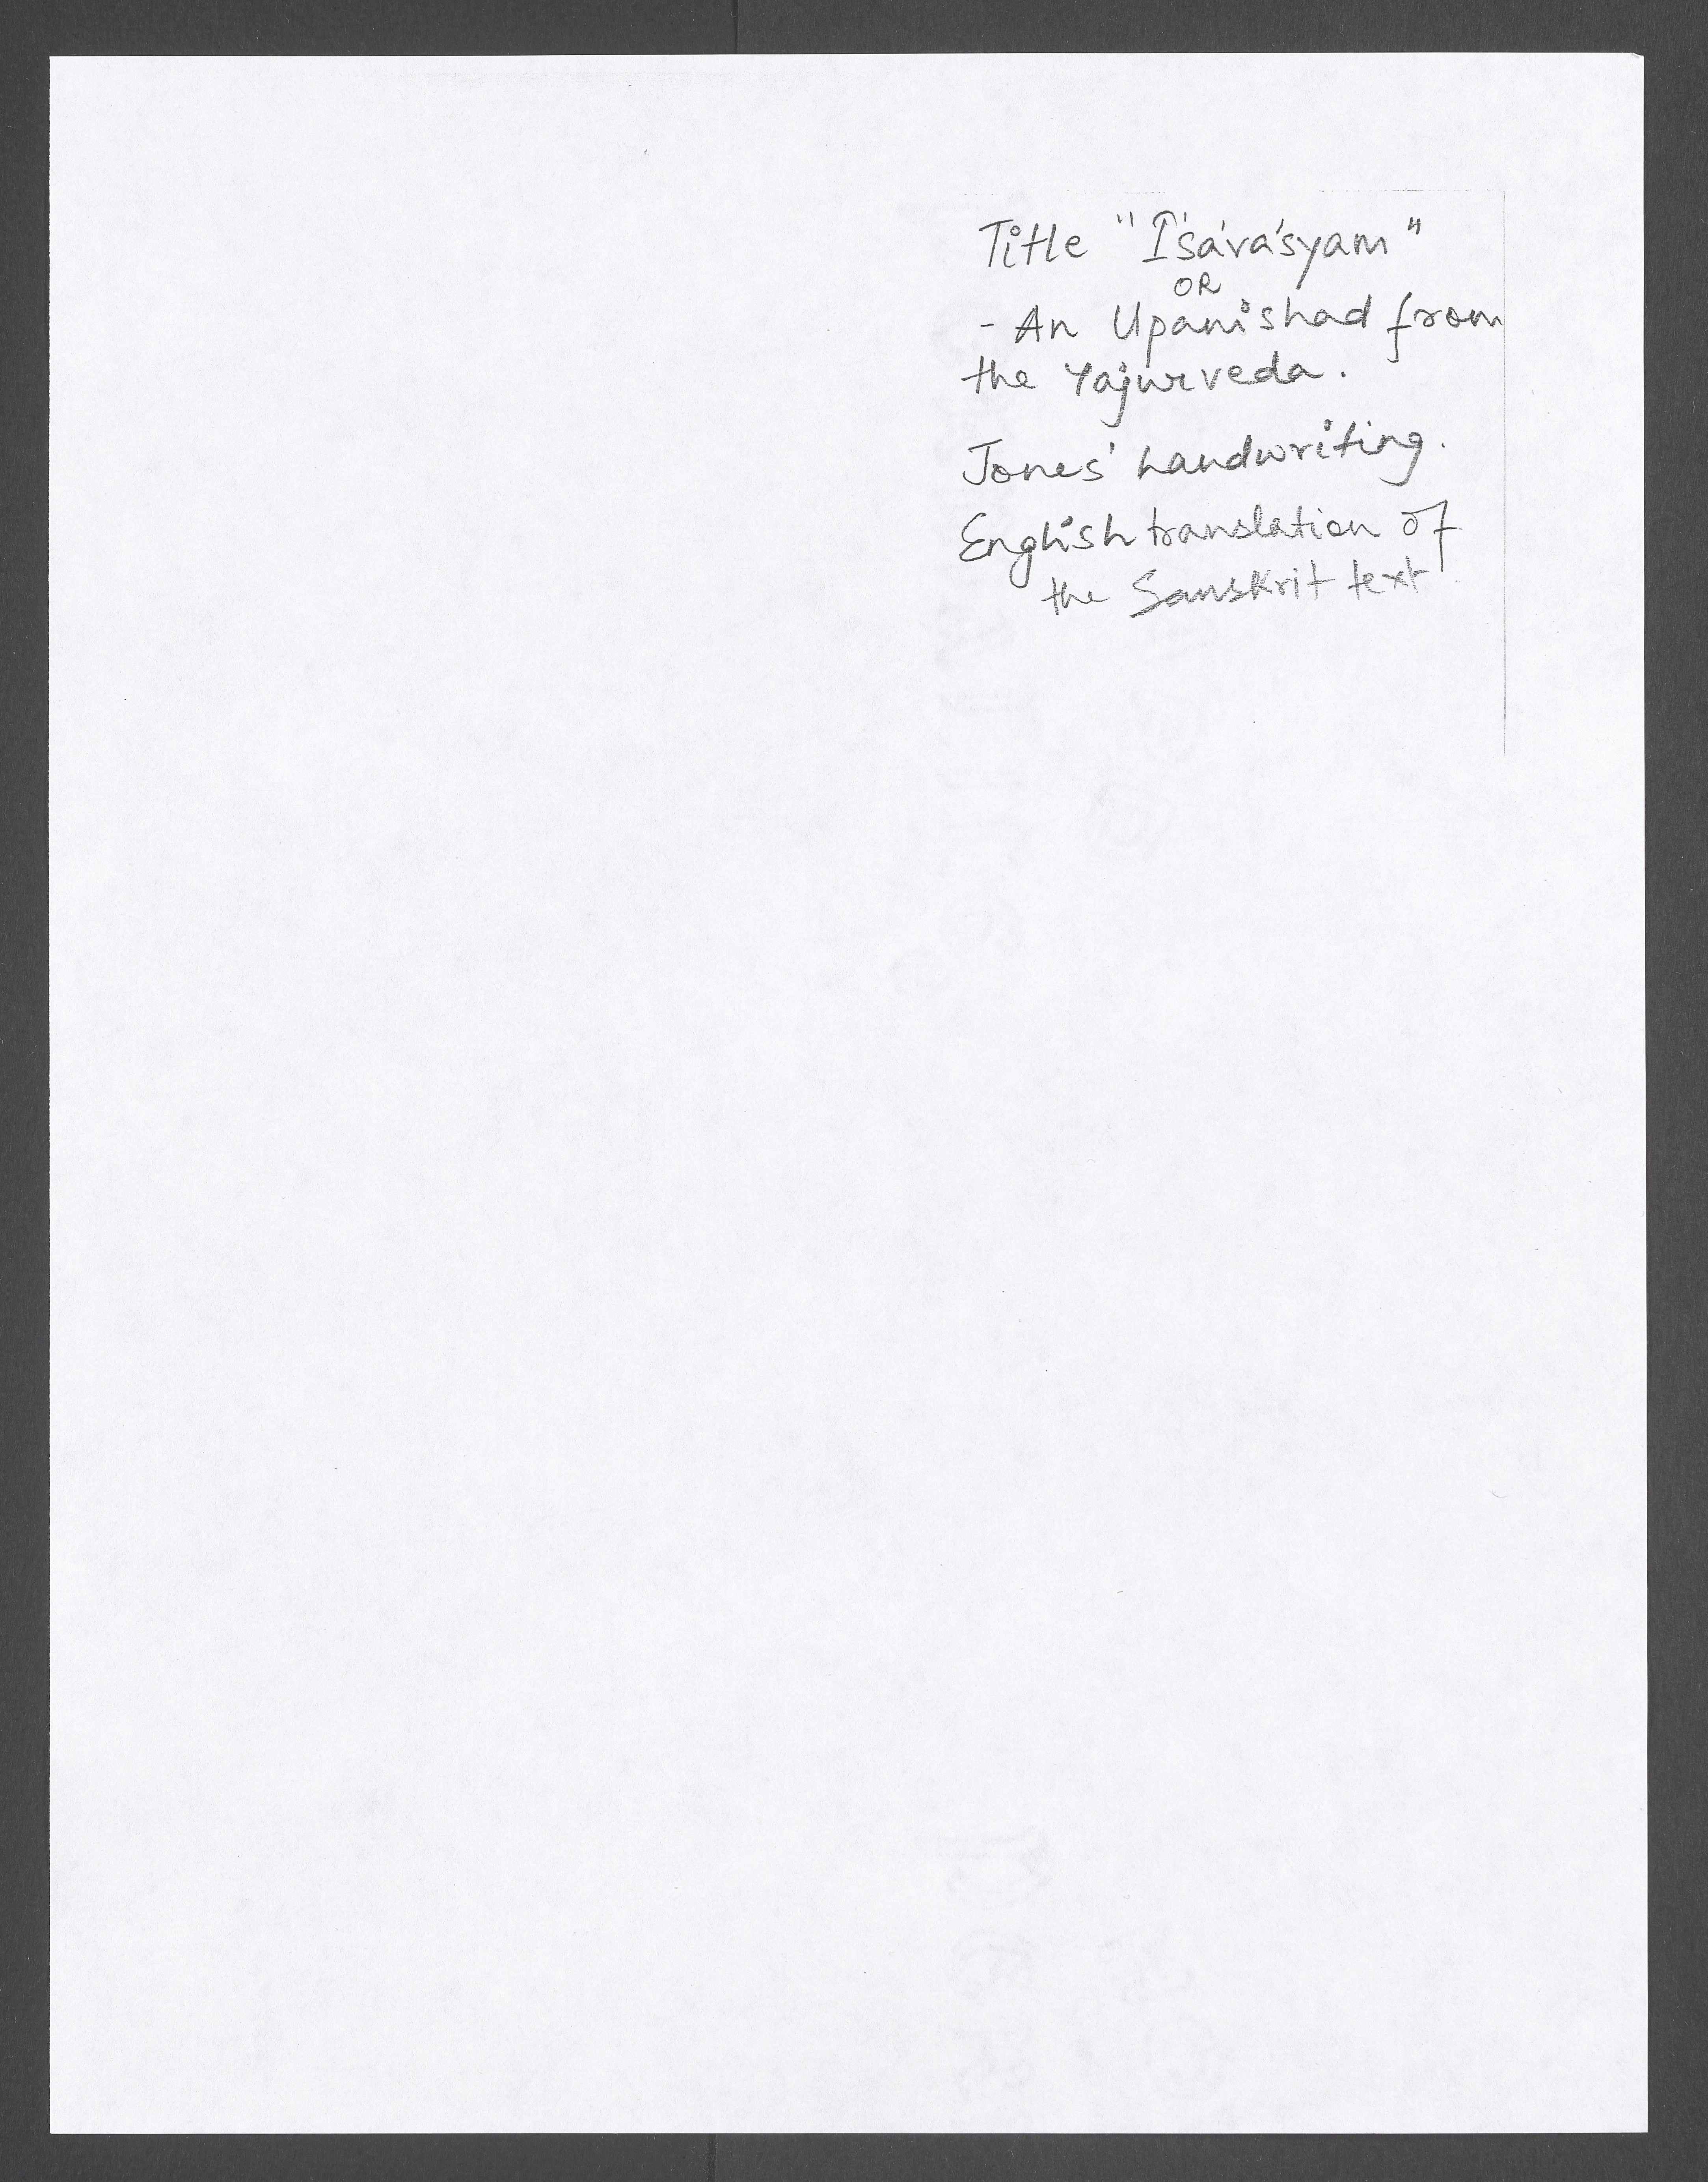 Title "Īśávásyam"
OR
- An Upanishad from
the Yajurveda.
Jones' handwriting.
English translation of
the Sanskrit text